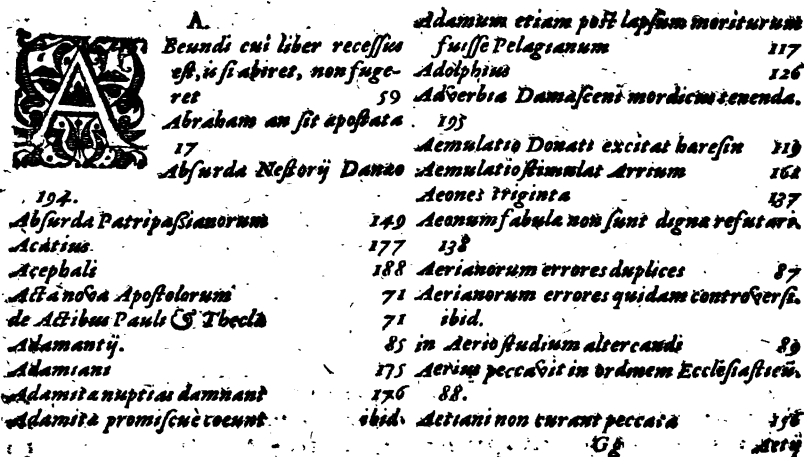 A.
ABeundi cui liber recessus
est, is si abiret, non fuge-
ret 59
Abraham an sit apostata
17
Absurda Nestorij Danæo
194.
Absurda Patripassianorum 149
Acatius 177
Acephali 188
Acta nova Apostolorum 71
de Actibus Pauli & Thecla 71
Adamantij. 85
Adamiani 175
Adamitæ nuptias damnant 176
Adamitæ promiscuè coeunt ibid.
Adamum etiam post lapsum moriturum
fuisse Pelagianum 117
Adolphius 126
Adverbia Damasceni mordicus tenenda.
195
Aemulatio Donati excitat hæresin 119
Aemulatio stimulat Arrium 162
Aeones triginta 137
Aeonum fabula non sunt digna refutari.
138
Aerianorum errores duplices 87
Aerianorum errores quidam controversi.
ibid.
in Aerio studium altercandi 89
Aerius peccavit in ordinem Ecclesiasticũ.
88.
Aetiani non curant peccata 156
Gg
Aetij